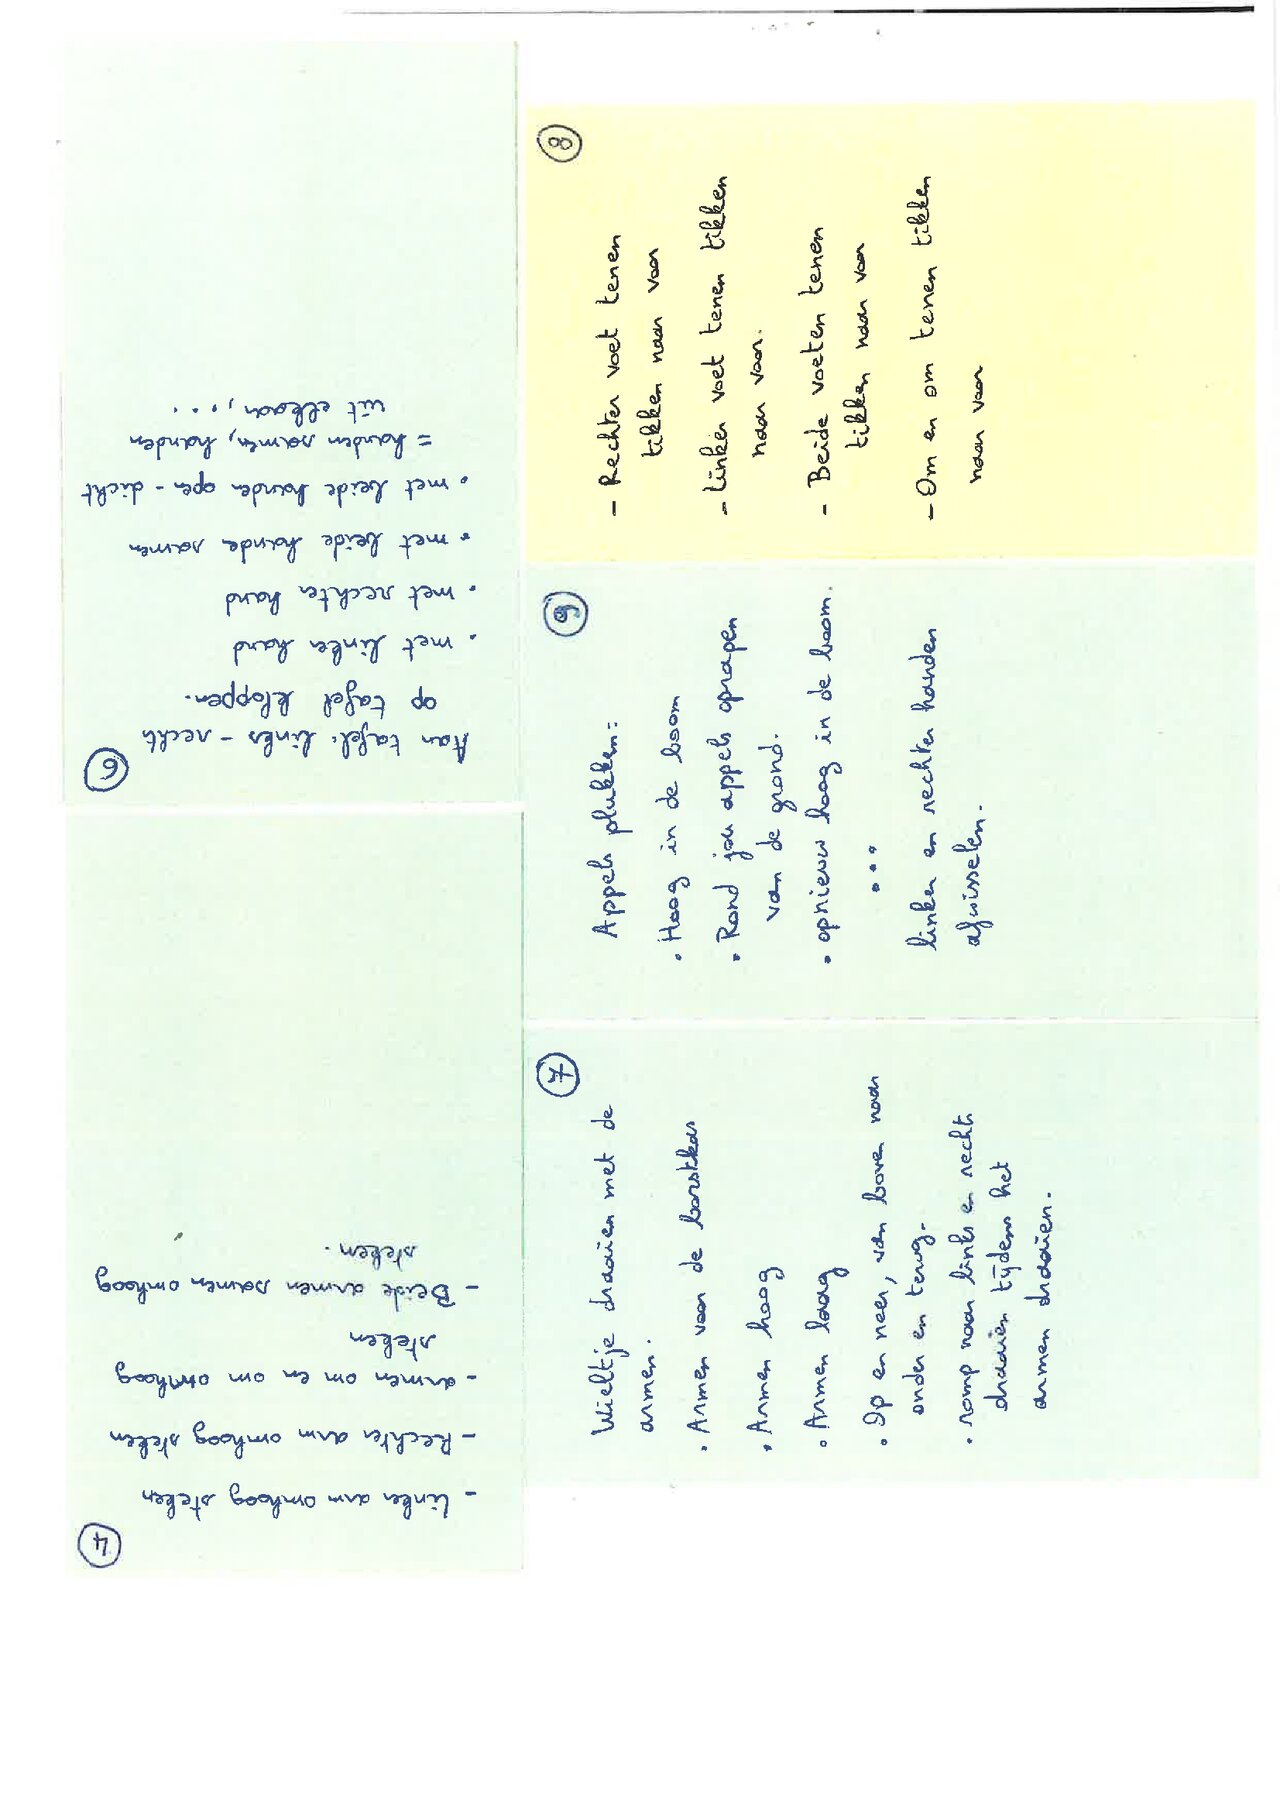 4
- linker arm omhoog steken
- Rechter arm omhoog steken
- armen om en om omhoog
steken
- Beide armen samen omhoog
steken.
6
Aan tafel: links - recht
op tafel kloppen.
• met linker hand
• met rechter hand
• met beide hande samen
• met beide handen open - dicht
= handen samen, handen
uit elkaar, ...
7
Wieltje draaien met de
armen.
• Armen voor de borstkas
• Armen hoog
• Armen laag
• Op en neer, van boven naar
onder en terug.
• romp naar links en recht
draaien tijdens het
armen draaien.
9
Appels plukken:
• Hoog in de boom
• Rond jou appels oprapen
van de grond.
• opnieuw hoog in de boom.
...
linker en rechter handen
afwisselen.
8
- Rechter voet tenen
tikken naar voor
- linker voet tenen tikken
naar voor.
- Beide voeten tenen
tikken naar voor
- Om en om tenen tikken
naar voor